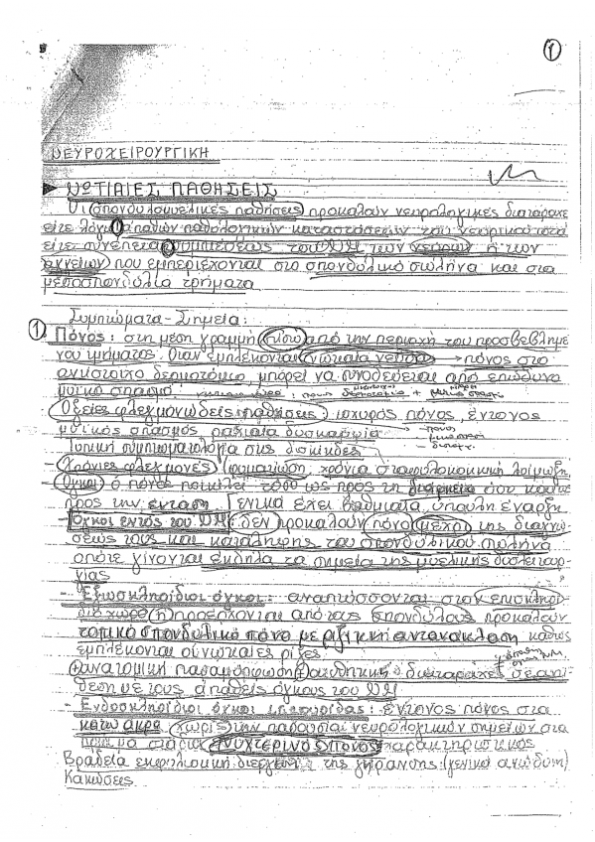 1
ΝΕΥΡΟΧΕΙΡΟΥΡΓΙΚΗ
ΝΩΤΙΑΙΕΣ ΠΑΘΗΣΕΙΣ
Οι σπονδυλομυελικές παθήσεις προκαλούν νευρολογικές διαταραχές
είτε λόγω παθολογικών καταστάσεων του νευρικού ιστού
είτε συνεπεία συμπιέσεως του ΝΜ των νεύρων ή των
αγγείων που εμπεριέχονται στο σπονδυλικό σωλήνα και στα
μεσοσπονδύλια τρήματα
Συμπτώματα-Σημεία:
1 Πόνος: στη μέση γραμμή πίσω από την περιοχή του προσβεβλημέ
νου τμήματος. Όταν εμπλέκονται νωτιαία νεύρα → πόνος στο
αντίστοιχο δερμοτόμιο, μπορεί να συνοδεύεται από επώδυνο
μυικό σπασμό
Οξείες φλεγμονώδεις παθήσεις: ισχυρός πόνος, έντονος
μυικός σπασμός ραχιαία δυσκαμψία
Τυπική συμπτωματολογία στις δισκίτιδες
- Χρόνιες φλεγμονές (φυματίωση, χρόνια σταφυλοκοκκική λοίμωξη
- Όγκοι ο πόνος ποικίλει τόσο ως προς τη διάρκεια όσο και ως
προς την ένταση Γενικά έχει βαθμιαία, ύπουλη έναρξη
- Όγκοι εντός του ΝΜ: δεν προκαλούν πόνο μέχρι της διογκώ
σεώς τους και κατάληψης του σπονδυλικού σωλήνα
οπότε γίνονται έκδηλα τα σημεία της μυελικής δυσλειτουρ
γίας
- Εξωσκληρίδιοι όγκοι: αναπτύσσονται στον επισκληρί
διο χώρο ή προέρχονται από τους σπονδύλους προκαλούν
τοπικό σπονδυλικό πόνο με ριζιτική αντανάκλαση καθώς
εμπλέκονται οι νωτιαίες ρίζες
Ανατομική παραμόρφωση + αισθητικές διαταραχές σε αντί
θεση με τους απαθείς όγκους του ΝΜ
- Ενδοσκληρίδιοι όγκοι ιππουρίδας: έντονος πόνος στα
κάτω άκρα χωρίς την παρουσία νευρολογικών σημείων στα
πρώιμα στάδια Νυχτερινός πόνος χαρακτηριστικός
Βραδεία εκφυλιστική διεργασία της γήρανσης: (γενικά ανώδυνη)
Κακώσεις